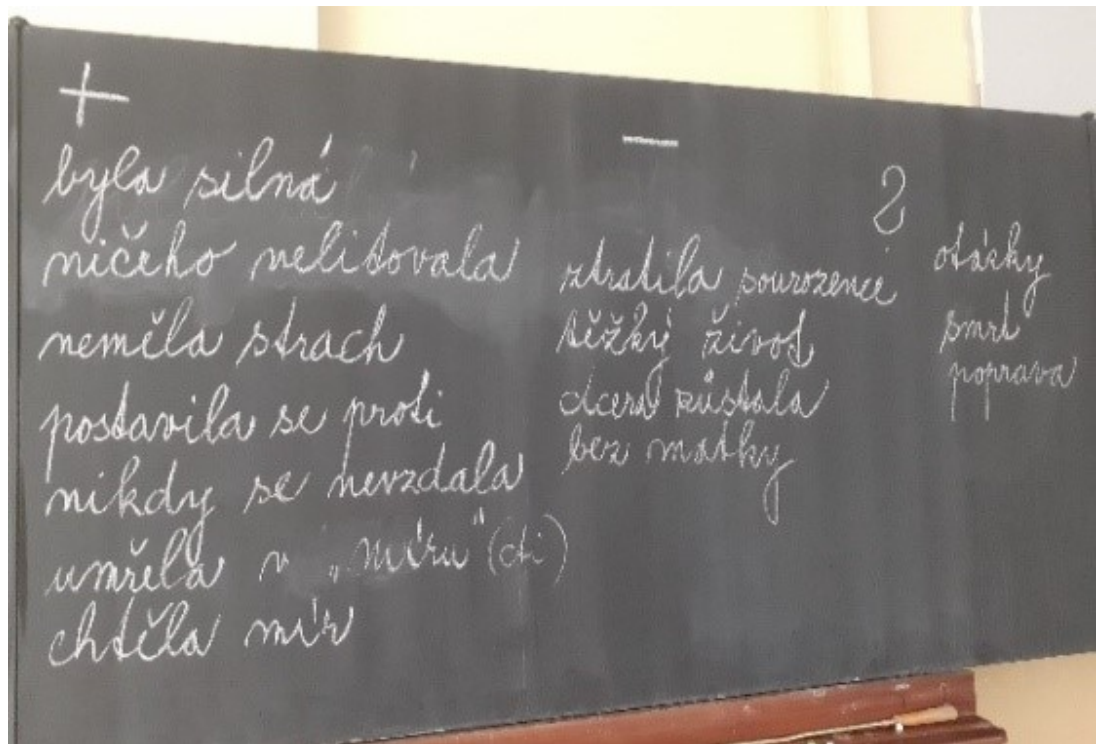 +
byla silná
ničeho nelitovala
neměla strach
postavila se proti
nikdy se nevzdala
umřela v „míru“ (cti)
chtěla mír
—
ztratila sourozence
těžký život
dcera zůstala
bez matky
?
otázky
smrt
poprava